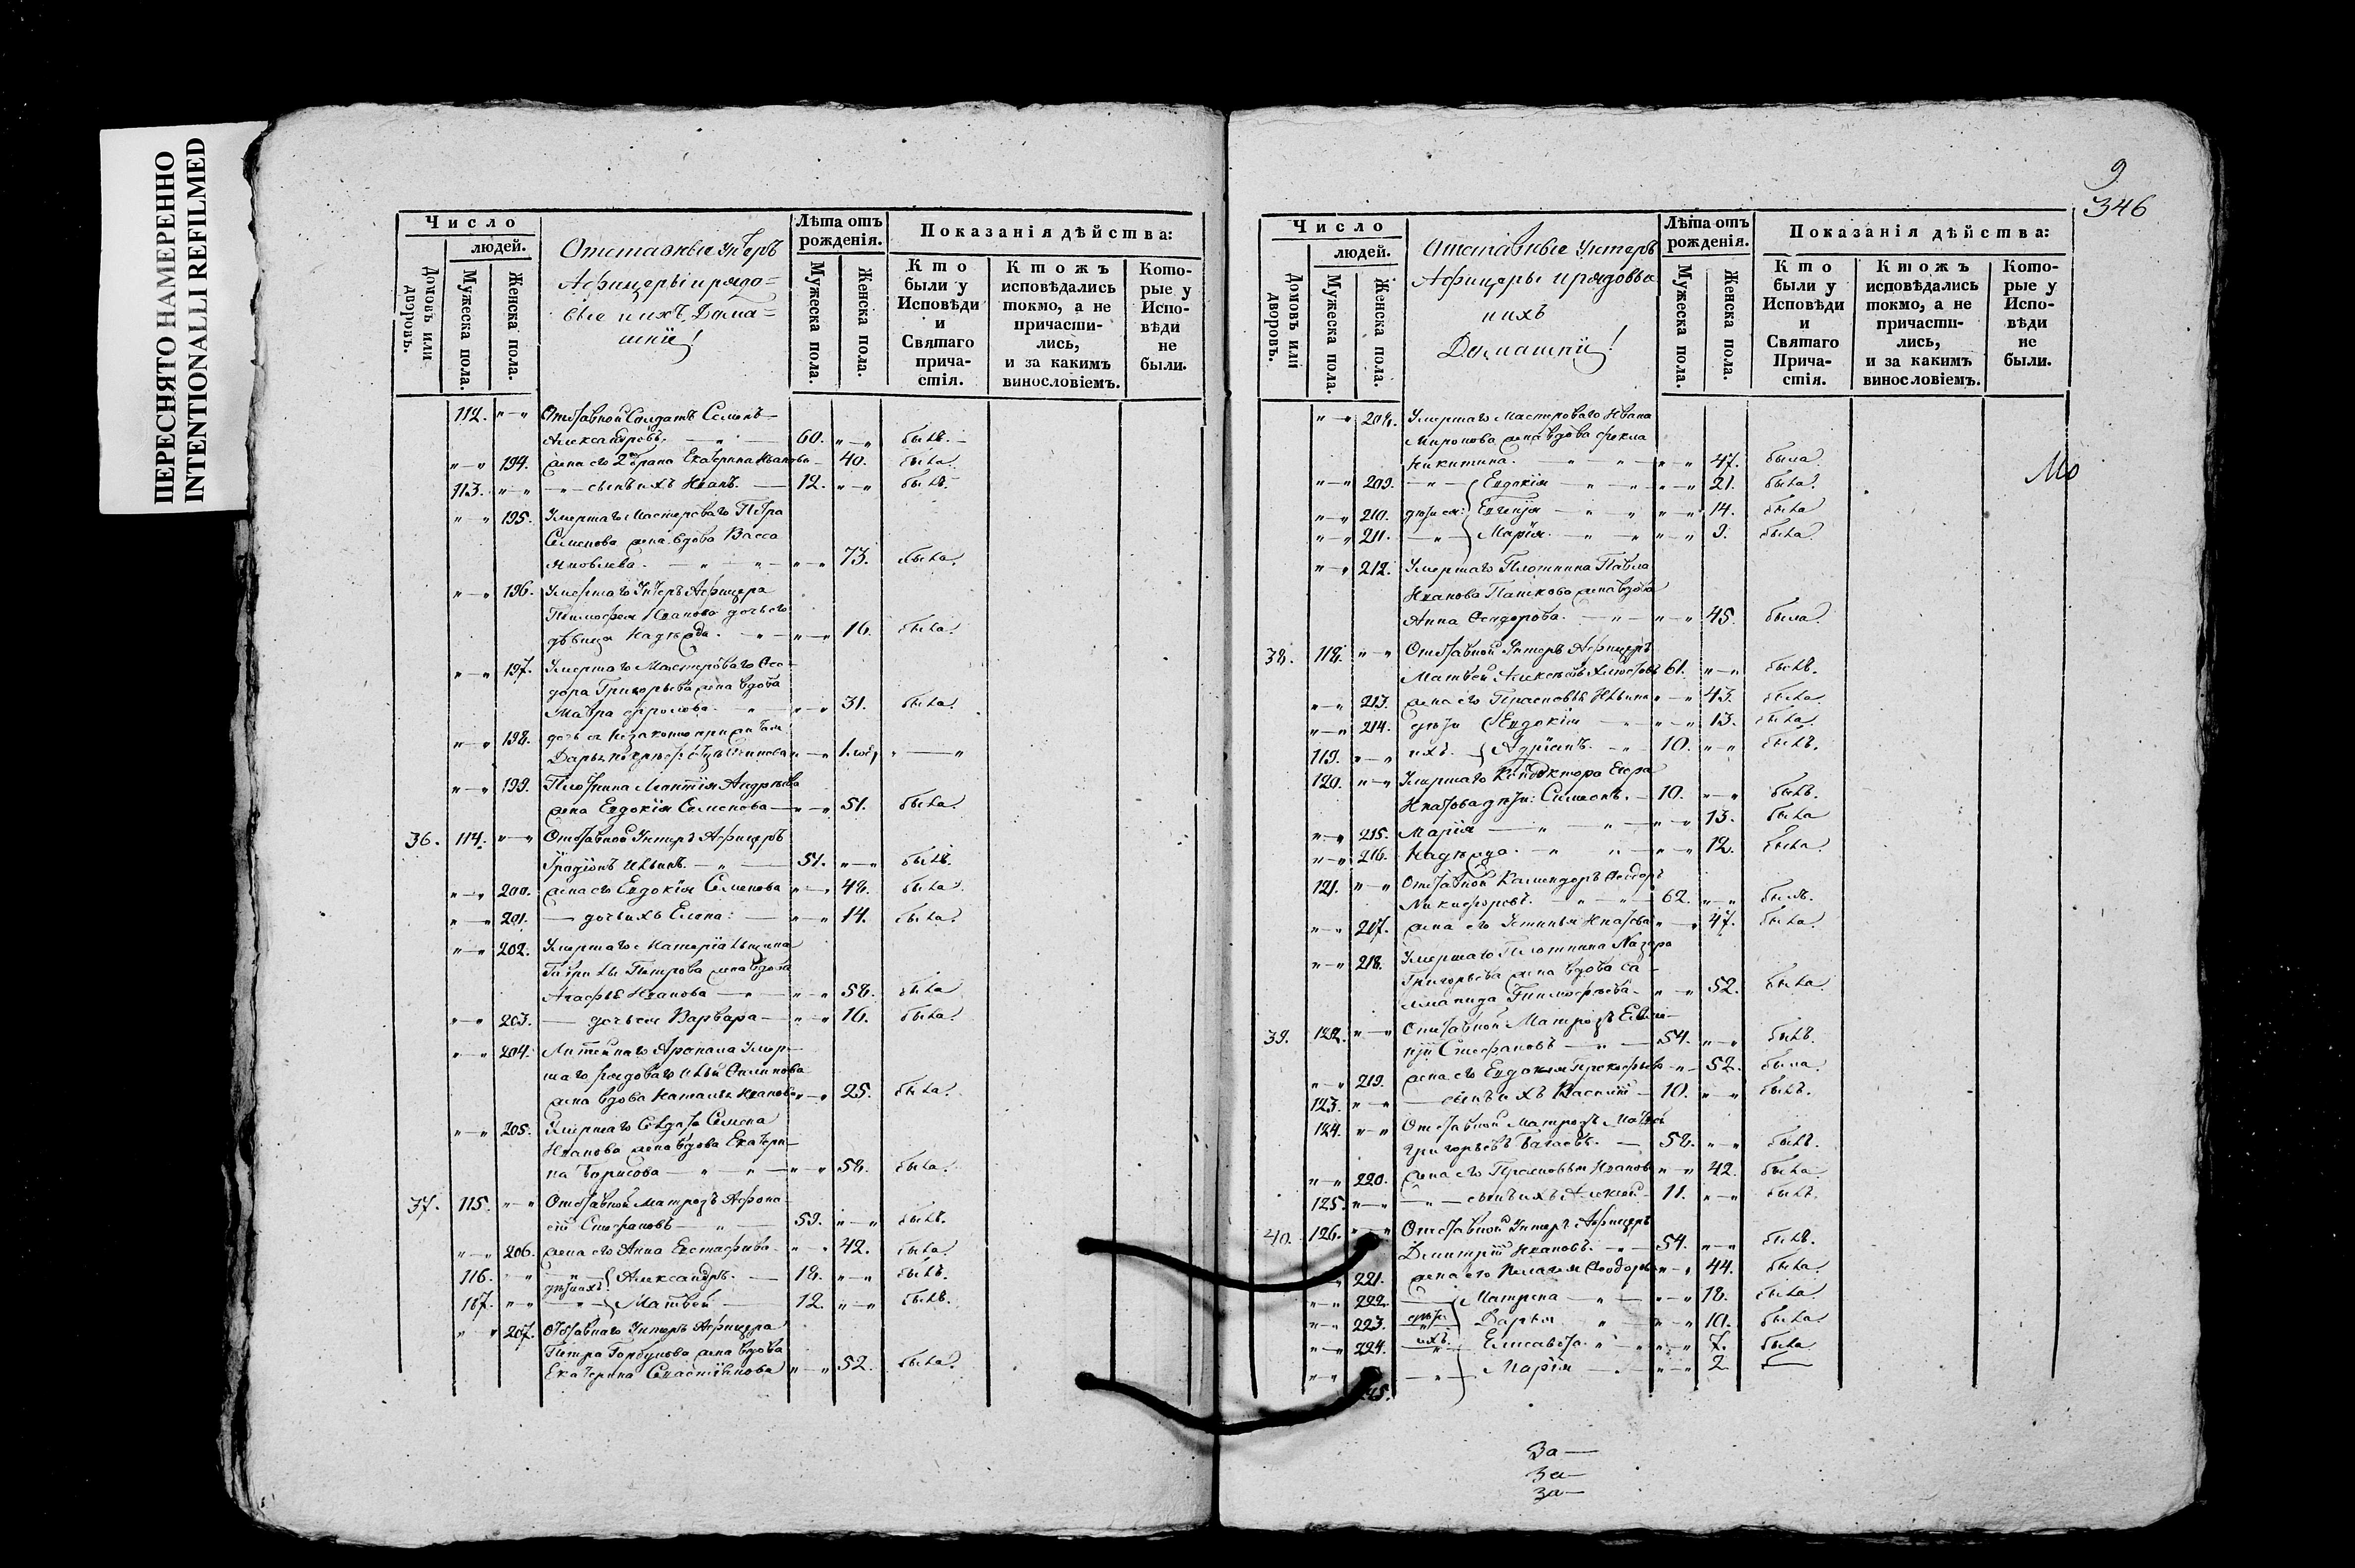 ПЕРЕСНЯТО НАМЕРЕННО
INTENTIONALLI REFILMED
Число
людей.
Домовъ или дворовъ.
Мужеска пола.
Женска пола.
Отставные Унтеръ
Афицеры и рядо=
вые и ихъ Дома=
шнiи
Лѣта отъ рожденiя.
Мужеска пола.
Женска пола.
Показанiя дѣйства:
Кто были у Исповѣди и Святаго причастiя.
Ктожъ исповѣдались токмо, а не причастились, и за какимъ винословiемъ.
Которые у Исповѣди не были.
112. Отставной Солдатъ Семенъ
Александровъ. 60. былъ.
194. жена его 2го брака Екатерина Иванова 40. была.
113. сынъ ихъ Иванъ. 12. былъ.
195. Умершаго Мастероваго Петра
Семенова жена вдова Васса
Яковлева. 73. была.
196. Умершаго Унтеръ Афицера
Тимофея Иванова дочь его
дѣвица Надежда. 16. была.
197. Умершаго Мастероваго Фео-
дора Григорьева жена вдова
Мавра Фролова. 31. была.
198. дочь ея незаконно
Дарья 1.
199. Плотника Андрѣева
жена Евдокiя Семенова 51. была.
36. 114. Отставной Унтеръ Афицеръ
Ильинъ. 51. былъ.
200. жена его Евдокiя Семенова 48. была.
201. дочь ихъ Елена: 14. была.
202. Умершаго
Петрова жена вдова
Агафья Иванова 58. была
203. дочь ея Варвара 16. была.
204. Умер-
шаго рядоваго
жена вдова Наталья Иванова 25. была.
205. Умершаго Семена
Иванова жена вдова Екатери-
на Борисова 58. была.
37. 115. Отставной Матрозъ Афона-
сiй Стефановъ 59. былъ.
206. жена его Анна Евстафiева. 42. была.
116. дѣти ихъ Александръ. 18. былъ.
117. Матвей 12. былъ.
207. Отставнаго Унтеръ Афицера
Петра Горбунова жена вдова
Екатерина 52. была.
9
346
Число
людей.
Домовъ или дворовъ.
Мужеска пола.
Женска пола.
Отставные Унтеръ
Афицеры и рядовые
и ихъ
Домашнiи
Лѣта отъ рожденiя.
Мужеска пола.
Женска пола.
Показанiя дѣйства:
Кто были у Исповѣди и Святаго Причастiя.
Ктожъ исповѣдались токмо, а не причастились, и за какимъ винословiемъ.
Которые у Исповѣди не были.
208. Умершаго Мастероваго Ивана
Миронова жена вдова Фекла
Никитина. 47. была.
209. Евдокiя 21. была.
210. дѣти ея: Евгенiя 14. была
211. Марiя 9. была.
212. Умершаго Плотника Павла
Иванова жена вдова
Анна Феодорова. 45. была.
38. 118. Отставной Унтеръ Афицеръ
Матвей Алексѣевъ 61. былъ.
213. жена его Прасковья Ильина 43. была.
214. дѣти Евдокiя 13. была.
119. ихъ. Адрiанъ. 10. былъ.
120. Умершаго Кондуктора
Игнатова дѣти: Симеонъ. 10. былъ.
215. Марiя 13. была
216. Надежда. 12. была.
121. Отставной
Никифоровъ. 62. былъ.
217. жена его Устинья Игнатова 47. была.
218. Умершаго Плотника Назара
Григорьева жена вдова Са-
ломанида Тимофеева 52. была.
39. 122. Отставной Матрозъ Евге-
нiй Стефановъ 54. былъ.
219. жена его Евдокiя Прокофьева 52. была.
123. сынъ ихъ Василiй 10. былъ.
124. Отставной Матрозъ
Григорьевъ 58. былъ.
220. жена его Прасковья Иванова 42. была
125. сынъ ихъ Алексѣй 11. былъ.
40. 126. Отставной Унтеръ Афицеръ
Димитрiй Ивановъ. 54. былъ.
221. жена его Пелагея Феодорова 44. была.
222. Матрена 18. была
223. дѣти Дарья 10. была.
224. ихъ. Елисавета. 7. была
225. Марiя 2
Мо
За
За
За